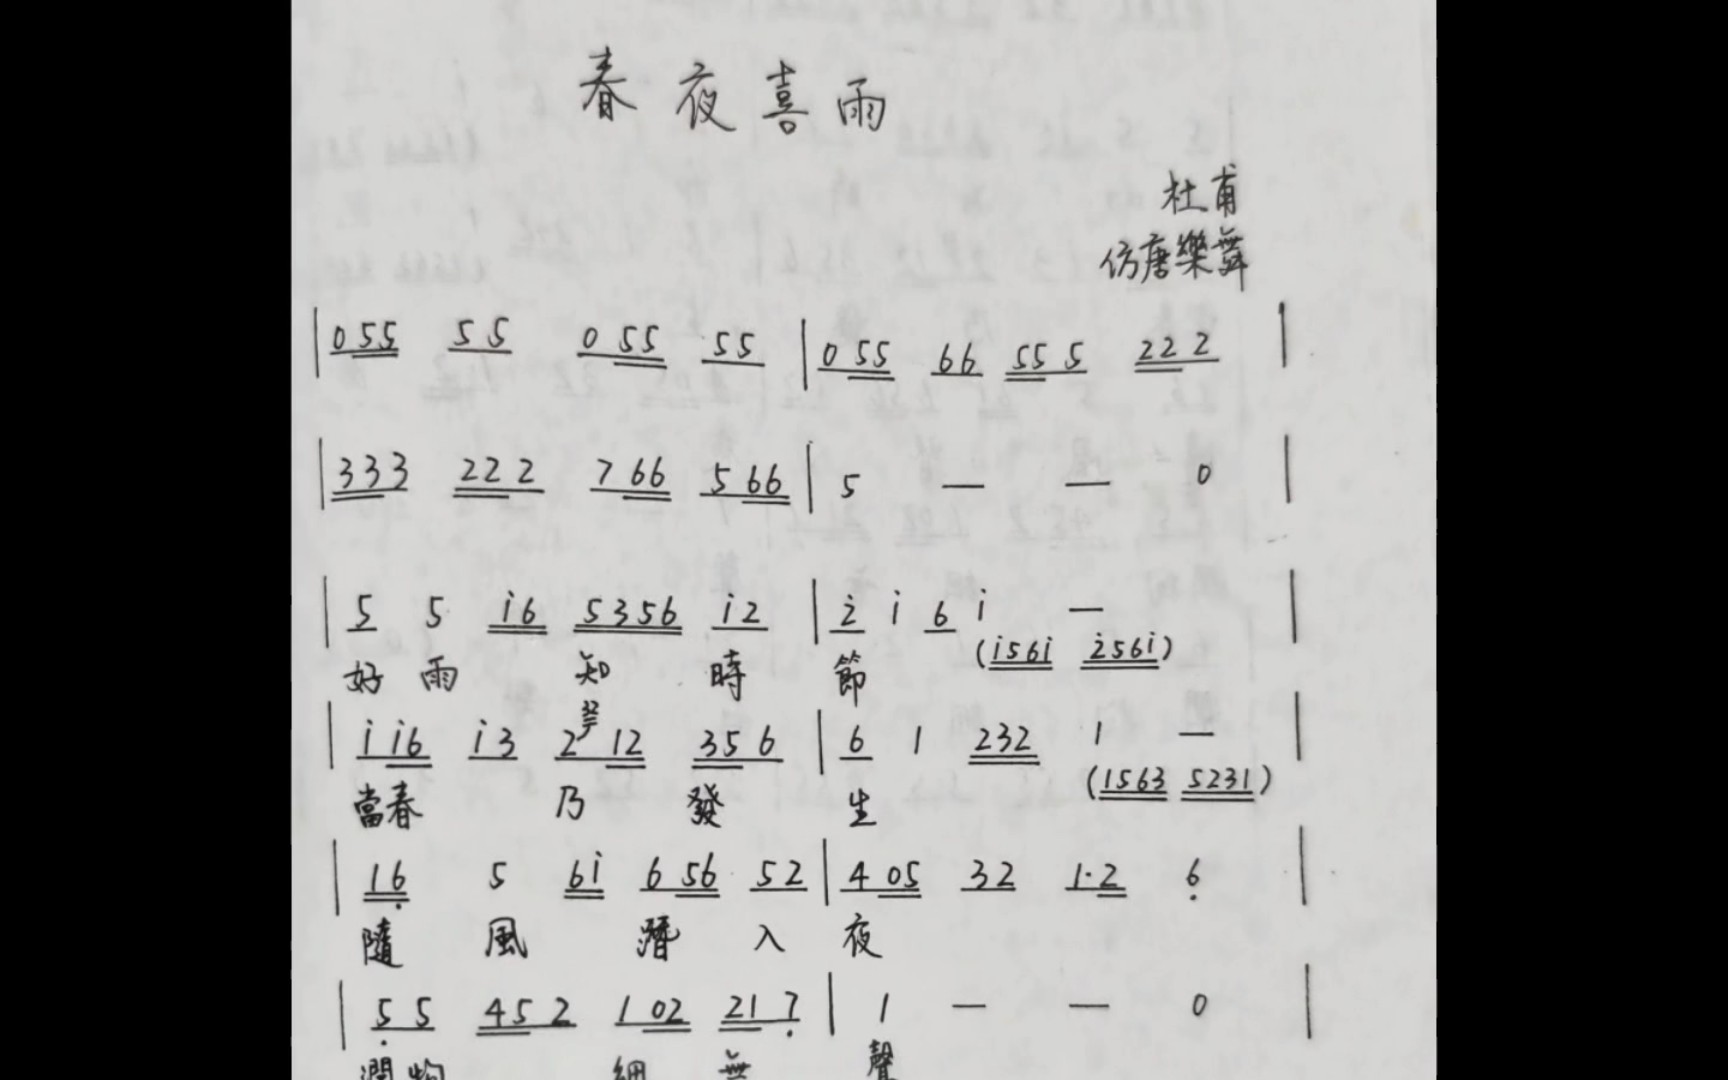 春夜喜雨
杜甫
仿唐樂舞
| 0 55 5 5 0 55 55 | 0 55 66 55 5 22 2 |
| 333 22 2 7 66 5 66 | 5 — — 0 |
| 5 5 i6 5356 i2 | 2̇ i 6 i — |
(i56i 2̇56i)
好 雨 知 時 節
| i i6 i3 2 12 35 6 | 6 1 232 1 — |
(1563 5231)
當春 乃 發 生
| 16̣ 5 6i 6 56 52 | 4 05 32 1·2 6̣ |
隨 風 潛 入 夜
| 5̣ 5 45 2 1 02 21 7̣ | 1 — — 0 |
潤物 細 無 聲